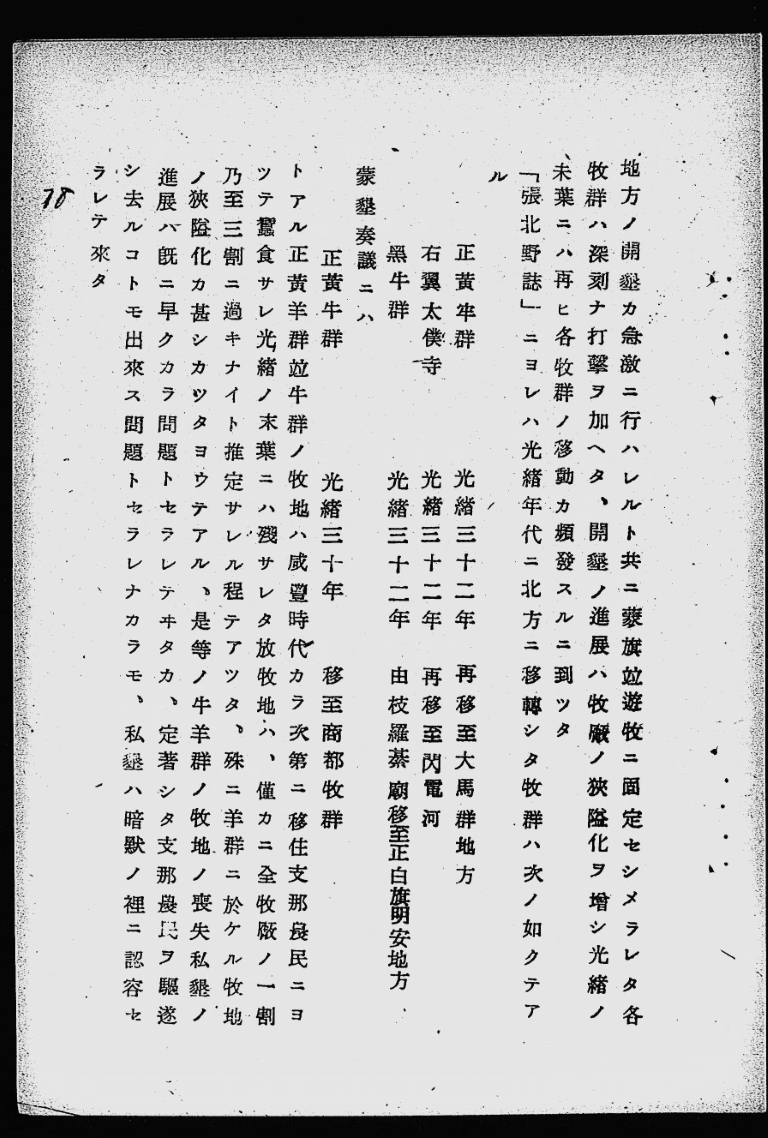 地方ノ開墾カ急激ニ行ハレルト共ニ蒙旗竝遊牧ニ固定セシメラレタ各
牧群ハ深刻ナ打擊ヲ加ヘタ、開墾ノ進展ハ牧廠ノ狹隘化ヲ增シ光緒ノ
末葉ニハ再ヒ各牧群ノ移動カ頻發スルニ到ツタ
「張北野誌」ニヨレハ光緒年代ニ北方ニ移轉シタ牧群ハ次ノ如クテア
ル
正黃牟群　光緒三十二年　再移至大馬群地方
右翼太僕寺　光緒三十二年　再移至閃電河
黑牛群　光緒三十二年　由枝羅綦廟移至正白旗明安地方
蒙墾奏議ニハ
正黃牛群　光緒三十年　移至商都牧群
トアル正黃羊群竝牛群ノ牧地ハ咸豐時代カラ次第ニ移住支那農民ニヨ
ツテ蠶食サレ光緒ノ末葉ニハ殘サレタ放牧地ハ、僅カニ全牧廠ノ一割
乃至三割ニ過キナイト推定サレル程テアツタ、殊ニ羊群ニ於ケル牧地
ノ狹隘化カ甚シカツタヨウテアル、是等ノ牛羊群ノ牧地ノ喪失私墾ノ
進展ハ旣ニ早クカラ問題トセラレテヰタカ、定著シタ支那農民ヲ驅逐
シ去ルコトモ出來ス問題トセラレナカラモ、私墾ハ暗默ノ裡ニ認容セ
ラレテ來タ
78